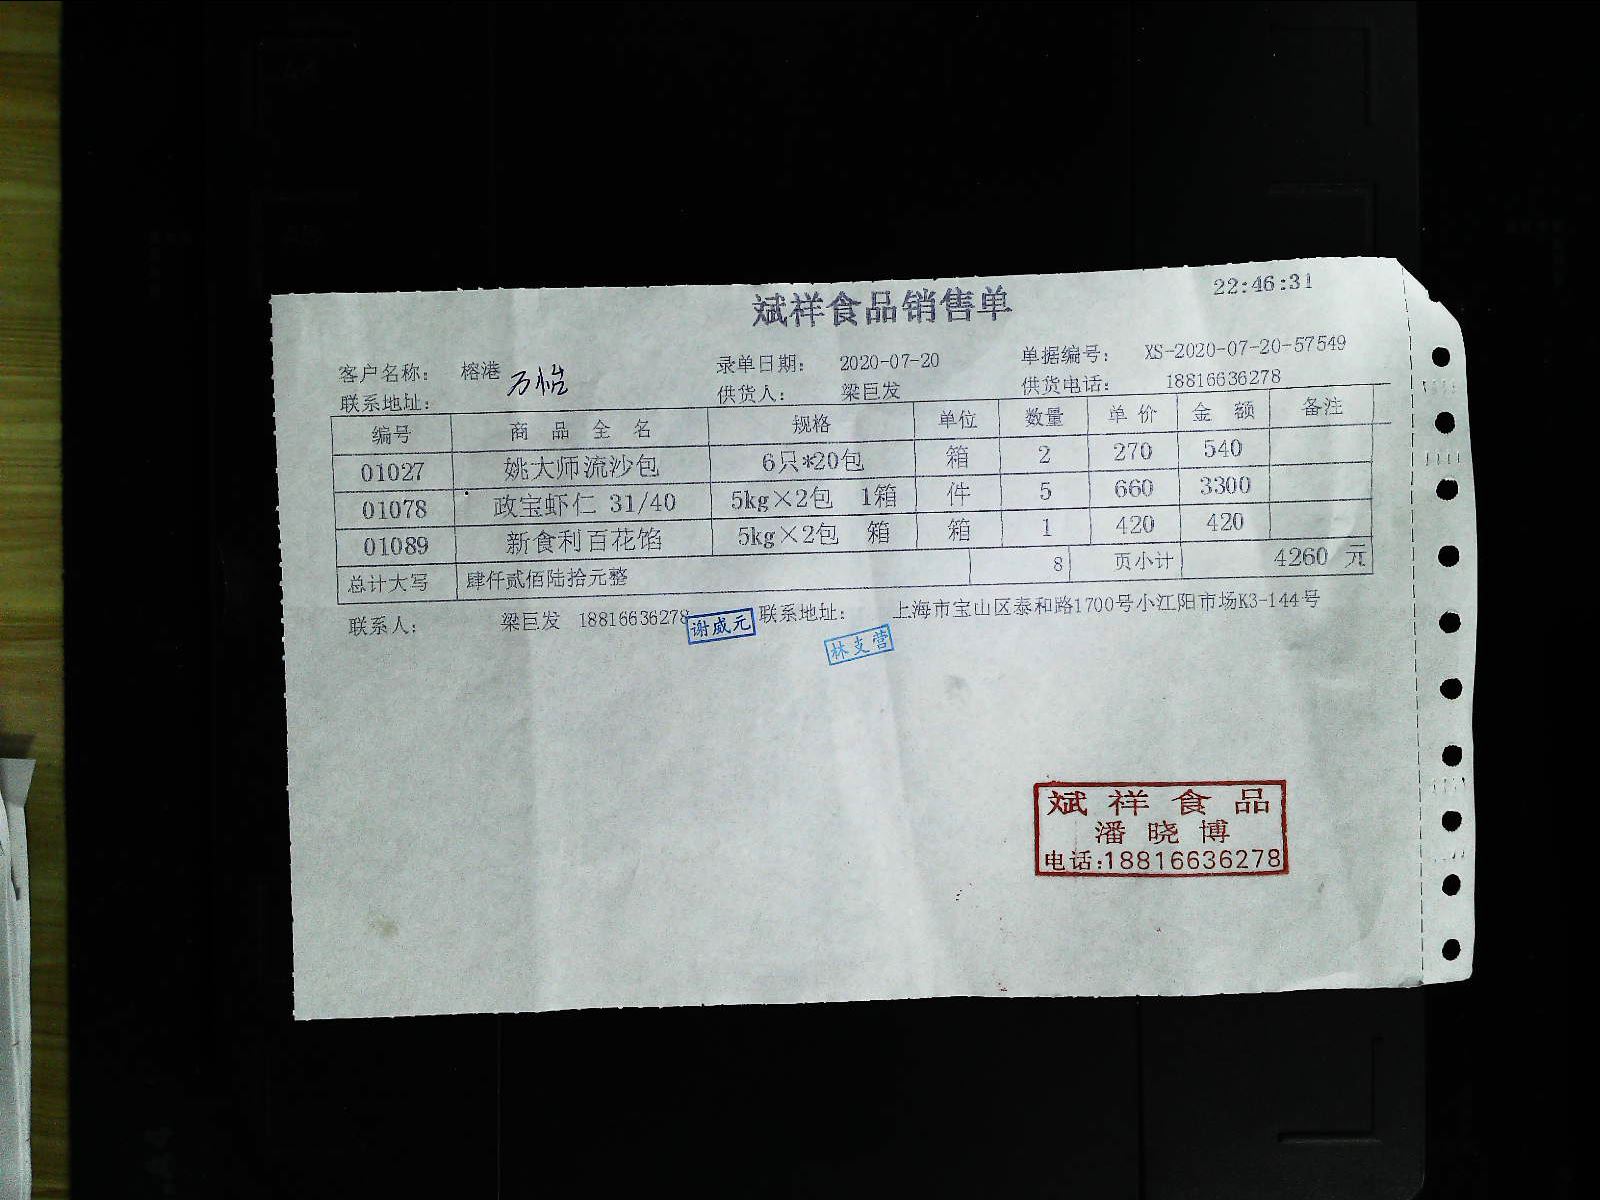 22:46:31
斌祥食品销售单
客户名称: 榕港 万怡 录单日期: 2020-07-20 单据编号: XS-2020-07-20-57549
联系地址: 供货人: 梁巨发 供货电话: 18816636278
编号 商 品 全 名 规格 单位 数量 单 价 金 额 备注
01027 姚大师流沙包 6只*20包 箱 2 270 540
01078 政宝虾仁 31/40 5kg×2包 1箱 件 5 660 3300
01089 新食利百花馅 5kg×2包 箱 箱 1 420 420
总计大写 肆仟贰佰陆拾元整 8 页小计 4260 元
联系人: 梁巨发 18816636278 联系地址: 上海市宝山区泰和路1700号小江阳市场K3-144号
谢威元
林支营
斌祥食品
潘晓博
电话:18816636278